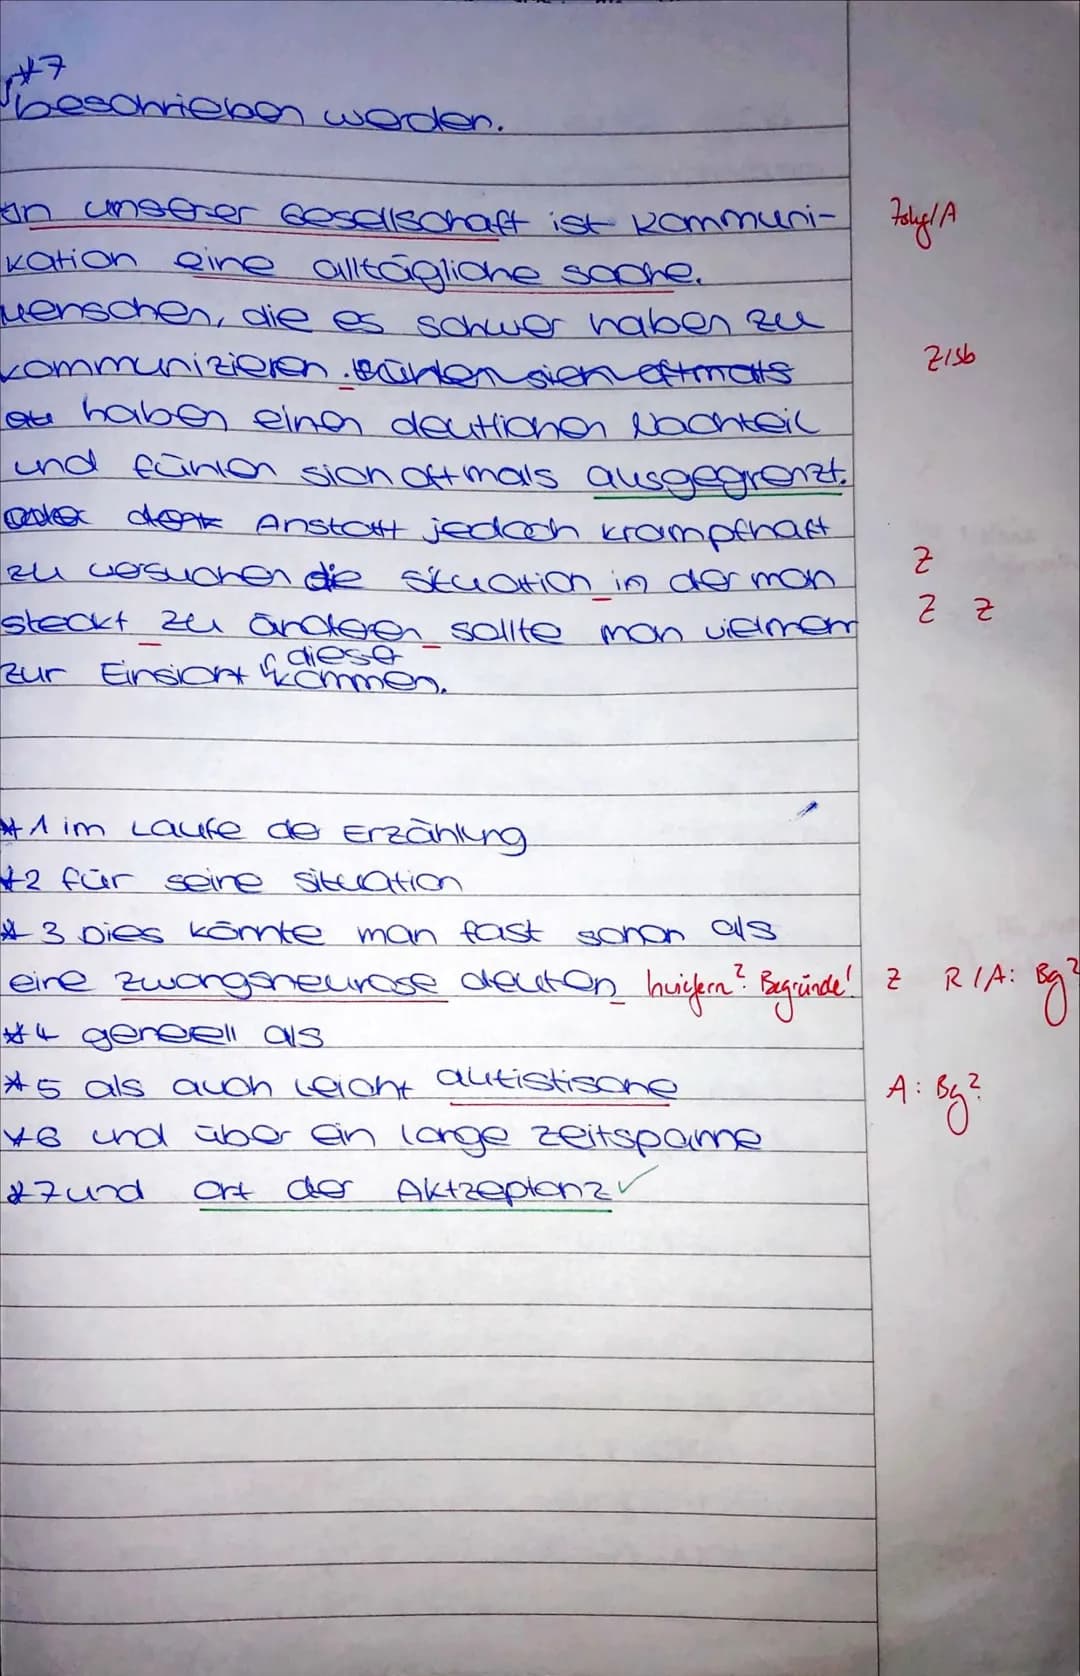 *7
beschrieben werden.
In unserer Gesellschaft ist Kommuni-
kation eine alltägliche sache.
Menschen, die es schwer haben zu
kommunizieren. fühlen sich oftmals
haben einen deutlichen Nachteil
und fühlen sich oftmals ausgegrenzt.
Anstatt jedoch krampfhaft
zu versuchen die situation in der man
steckt zu ändern sollte man vielmehr
diese
zur Einsicht kommen.
*1 im Laufe der Erzählung
*2 für seine situation
*3 Dies könnte man fast schon als
eine zwangsneurose deuten inwiefern? Begründe! Z R/A: Bg?
*4 generell als
*5 als auch leicht autistische A: Bg?
*6 und über ein lange zeitspanne
*7 und Ort der Aktzeptanz ✓
Folg/A
Z/Sb
Z
Z Z